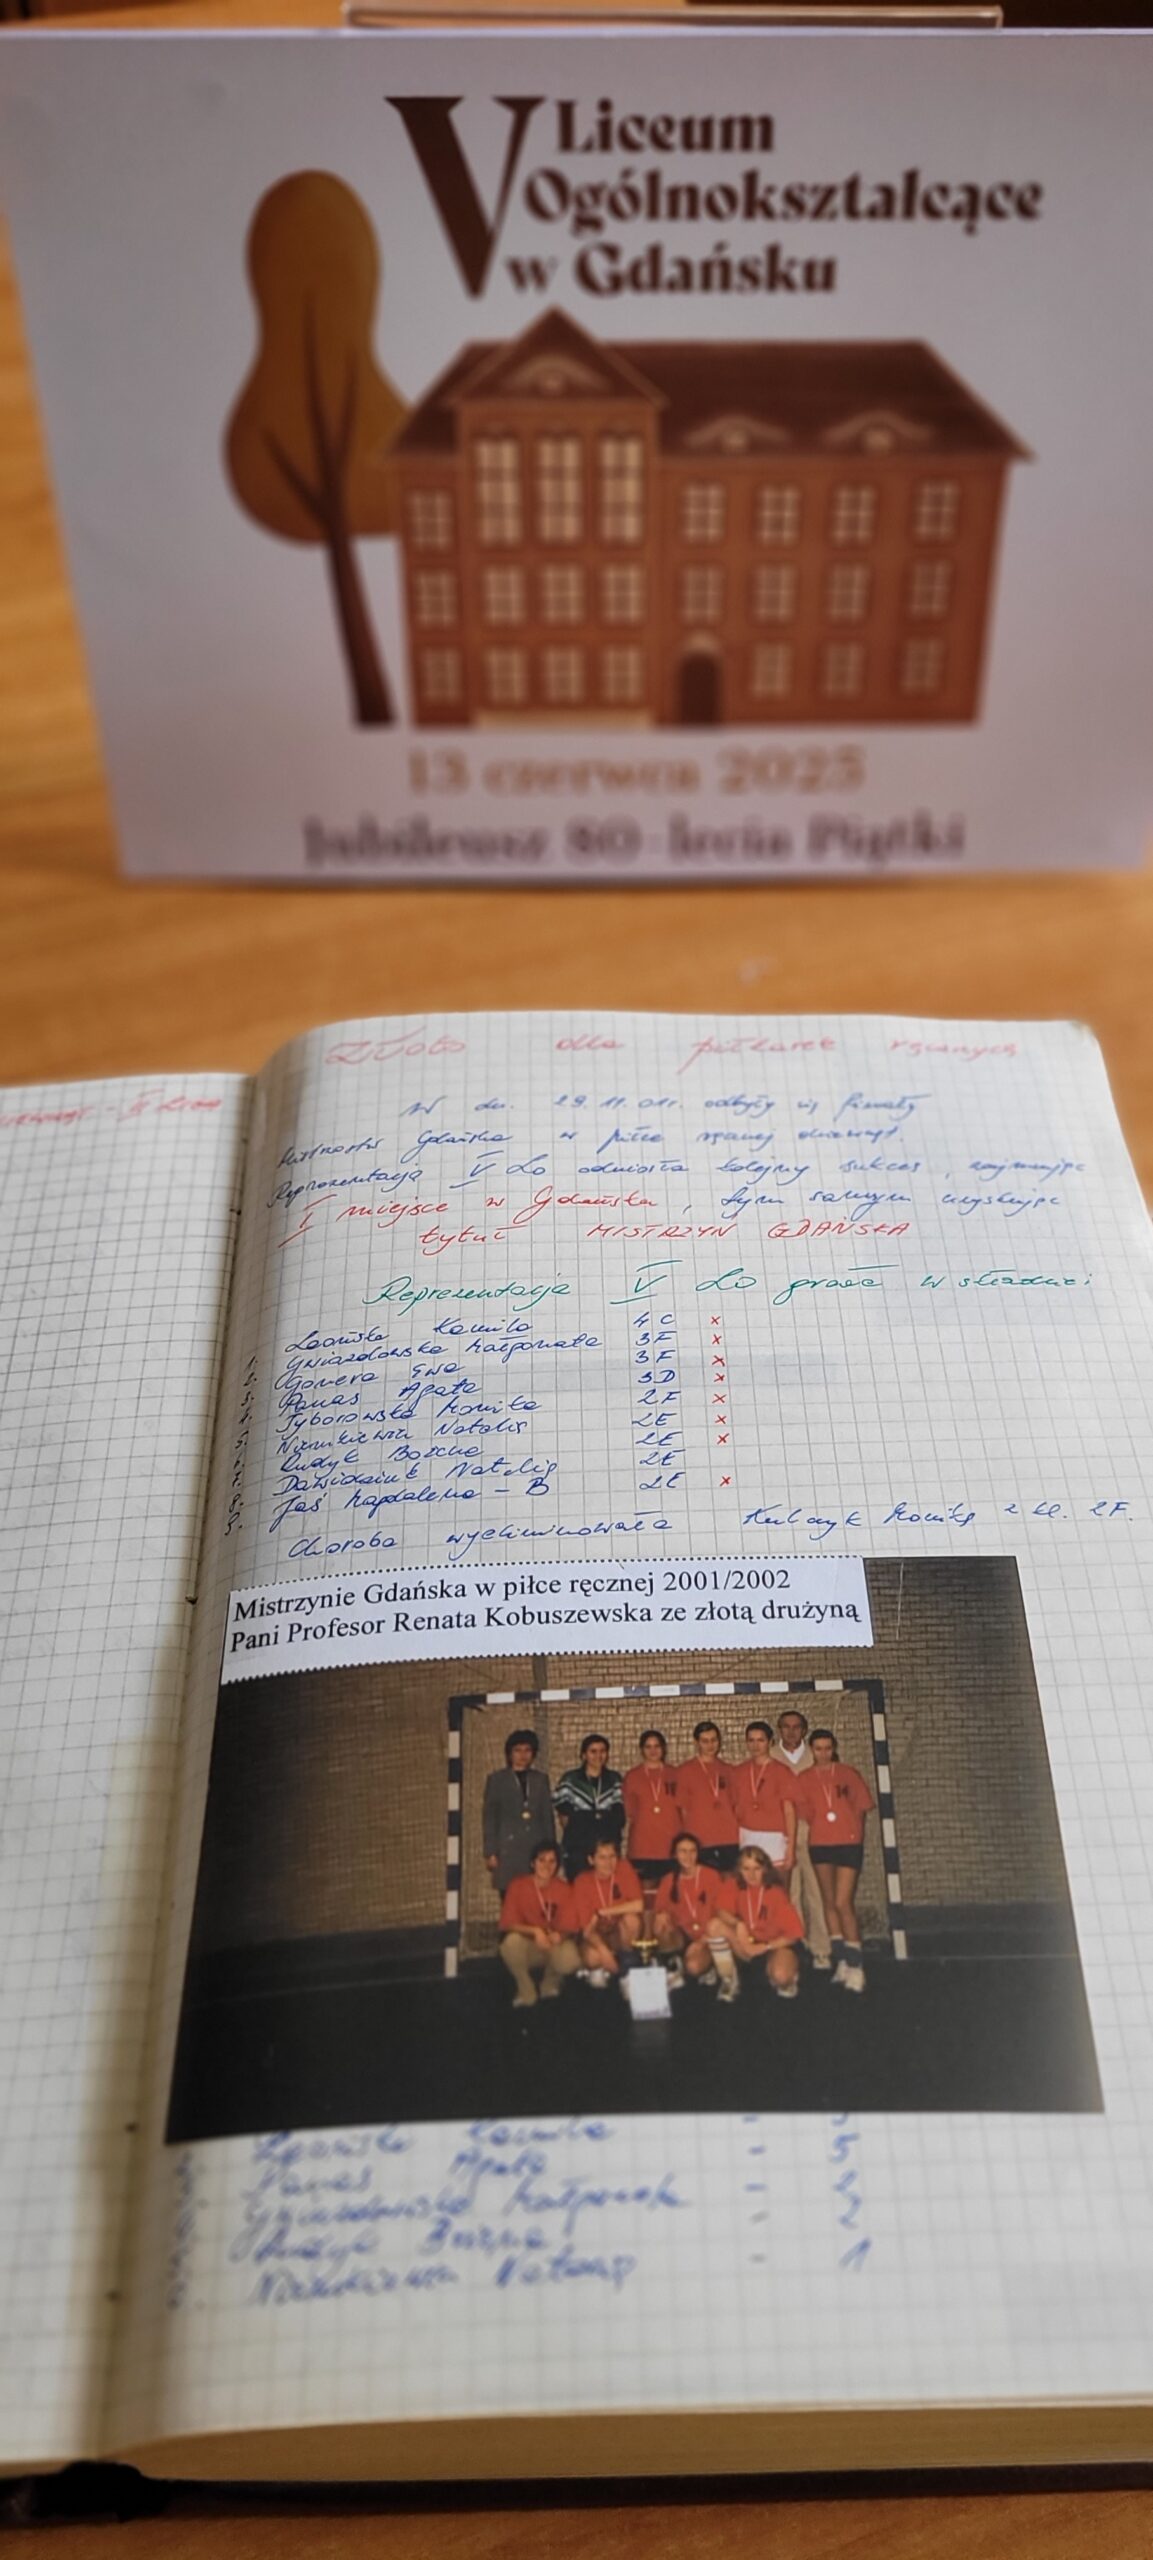 V Liceum
Ogólnokształcące
w Gdańsku
13 czerwca 2025
Jubileusz 80-lecia Piątki
II LO
Złoto dla piłkarek ręcznych
W dn. 29.11.01r. odbyły się finały
Mistrzostw Gdańska w piłce ręcznej dziewcząt.
Reprezentacja V LO odniosła kolejny sukces, zajmując
I miejsce w Gdańsku, tym samym uzyskując
tytuł MISTRZYŃ GDAŃSKA
Reprezentacja V LO grała w składzie:
1. Kamila 4C x
2. Gwiazdowska Małgorzata 3F x
3. Gomera Ewa 3F x
4. Panas Agata 3D x
5. Tyborowska Monika 2F x
6. Natalia 2E x
7. Rudyk Bożena 2E x
8. Natalia 2E
9. Jaś Magdalena - B 2E x
Choroba wyeliminowała Kulczyk Monikę z kl. 2F.
Mistrzynie Gdańska w piłce ręcznej 2001/2002
Pani Profesor Renata Kobuszewska ze złotą drużyną
Kamila -
Panas Agata - 5
Gwiazdowska Małgorzata - 2
Rudyk Bożena - 2
Natalia - 1